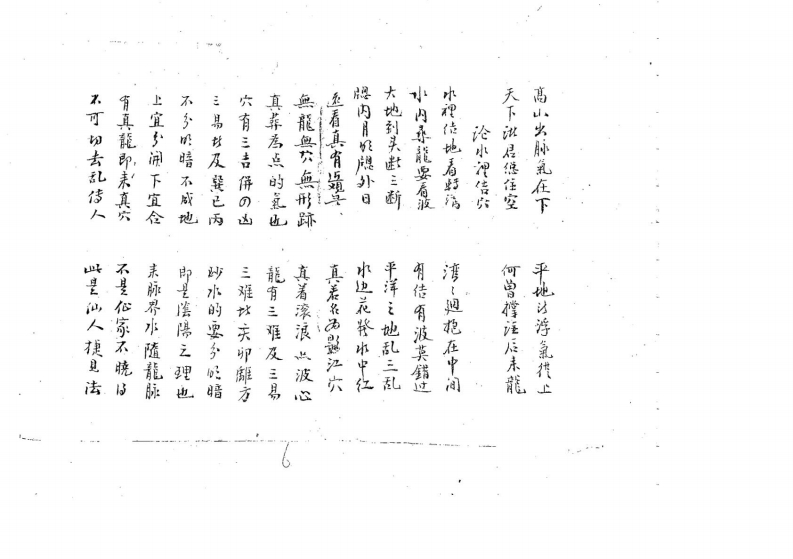 高山出脉氣在下
平地浮氣從上
天下君總住空
何曾撑后來龍
水裡佶穴
水裡佶地看
湾々廻抱在中间
水内尋龍要看波
有佶有波莫錯过
大地到头断三断
平洋之地乱三乱
牕内月明牕外日
水边花發水中红
遠看真有
真著名为影江穴
無龍無穴無形跡
真着滚浪波心
真葬為点的氣也
龍有三难及三易
穴有三吉併の凶
三难此亥卯離方
三易此及巽巳丙
砂水的要分明暗
不分明暗不成地
即是陰陽之理也
上宜分開下宜合
来脉界水隨龍脉
有真龍即来真穴
不是仙家不曉得
不可切去乱侍人
此是仙人捷見法
6